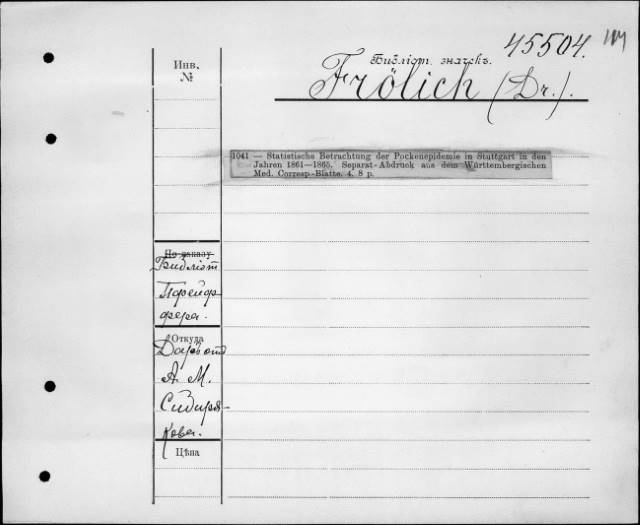 45504.
Инв.
№
Библіот. значекъ.
Frölich (Dr.).
1041 — Statistische Betrachtung der Pockenepidemie in Stuttgart in den
Jahren 1861—1865. Separat-Abdruck aus dem Württembergischen
Med. Corresp.-Blatte. 4. 8 p.
По заказу
Библіот
Пфейф-
фера.
Откуда
Даръ отъ
А. М.
Сибиря-
кова.
Цѣна